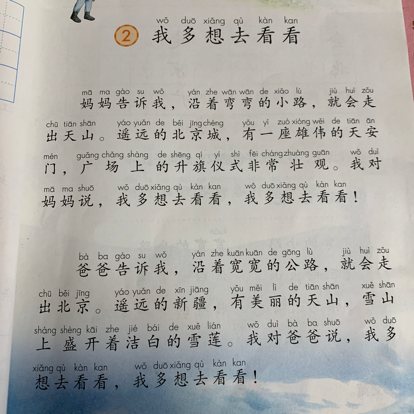 wǒ duō xiǎng qù kàn kan
2 我多想去看看
mā ma gào su wǒ yán zhe wān wān de xiǎo lù jiù huì zǒu
妈妈告诉我，沿着弯弯的小路，就会走
chū tiān shān yáo yuǎn de běi jīng chéng yǒu yí zuò xióng wěi de tiān ān
出天山。遥远的北京城，有一座雄伟的天安
mén guǎng chǎng shàng de shēng qí yí shì fēi cháng zhuàng guān wǒ duì
门，广场上的升旗仪式非常壮观。我对
mā ma shuō wǒ duō xiǎng qù kàn kan wǒ duō xiǎng qù kàn kan
妈妈说，我多想去看看，我多想去看看！
bà ba gào su wǒ yán zhe kuān kuān de gōng lù jiù huì zǒu
爸爸告诉我，沿着宽宽的公路，就会走
chū běi jīng yáo yuǎn de xīn jiāng yǒu měi lì de tiān shān xuě shān
出北京。遥远的新疆，有美丽的天山，雪山
shàng shèng kāi zhe jié bái de xuě lián wǒ duì bà ba shuō wǒ duō
上盛开着洁白的雪莲。我对爸爸说，我多
xiǎng qù kàn kan wǒ duō xiǎng qù kàn kan
想去看看，我多想去看看！